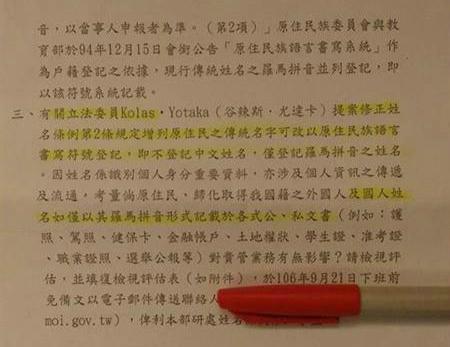 音，以當事人申報者為準。（第2項）」原住民族委員會與教
育部於94年12月15日會銜公告「原住民族語言書寫系統」作
為戶籍登記之依據，現行傳統姓名之羅馬拼音並列登記，即
以該符號系統記載。
三、有關立法委員Kolas．Yotaka（谷辣斯．尤達卡）提案修正姓
名條例第2條規定增列原住民之傳統名字可改以原住民族語言
書寫符號登記，即不登記中文姓名，僅登記羅馬拼音之姓名
。因姓名係識別個人身分重要資料，亦涉及個人資訊之傳遞
及流通，考量倘原住民、歸化取得我國籍之外國人及國人姓
名如僅以其羅馬拼音形式記載於各式公、私文書（例如：護
照、駕照、健保卡、金融帳戶、土地權狀、學生證、准考證
、職業證照、選舉公報等）對貴管業務有無影響？請檢視評
估，並填復檢視評估表（如附件），於106年9月21日下班前
免備文以電子郵件傳送聯絡人
moi.gov.tw），俾利本部研處姓名